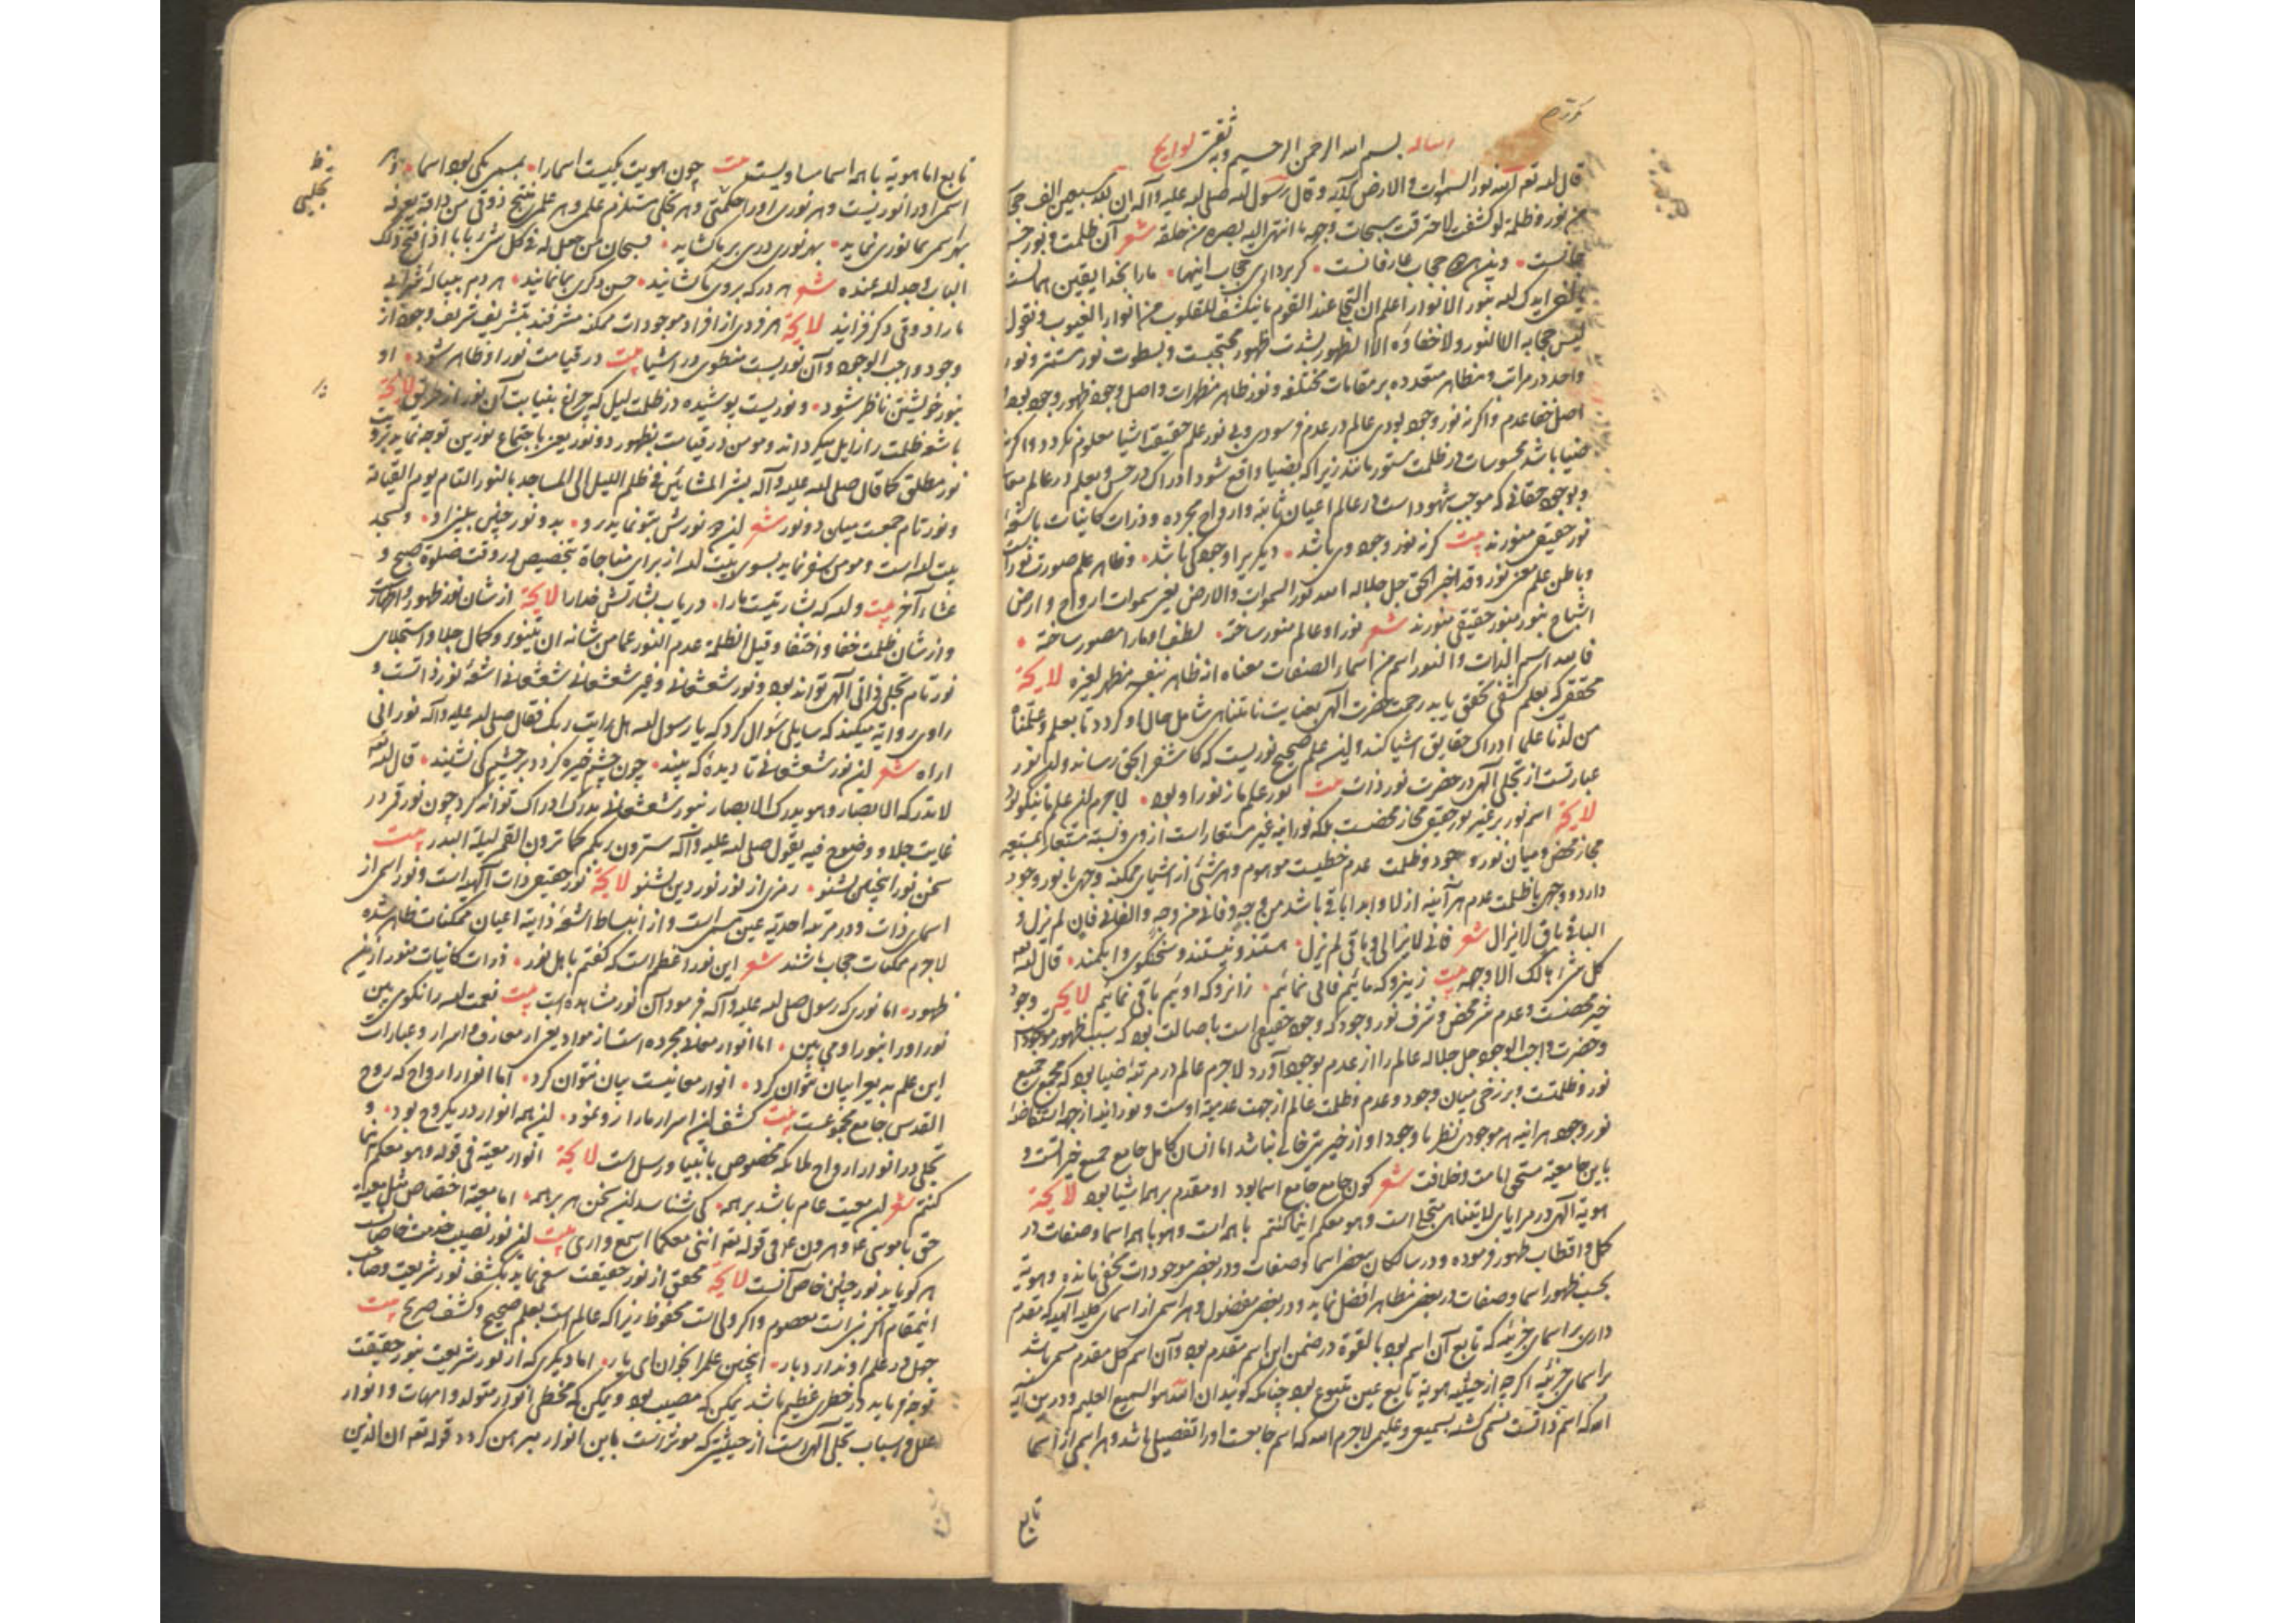 رساله بسم الله الرحمن الرحیم وبه ثقتی لوایح
قال الله تعم الله نور السموات والارض الآیه وقال رسول الله صلی الله علیه وآله ان لله سبعین الف حجاب
من نور وظلمة لو کشفت لاحترقت سبحات وجهه ما انتهی الیه بصره من خلقه شعر آن ظلمت ونور
حجاب عارفانست کر برداری حجاب اینها مارا بخدا یقین همانست
ایدک الله بنور الانوار اعلم ان التجلی عند القوم ما ینکشف للقلوب من انوار الغیوب ونقول
لیس حجابه الا النور ولا خفاؤه الا الظهور بشدت ظهور محتجبست وبسطوت نور مستتر ونور
واحد در مراتب ومظاهر متعدده بر مقامات مختلفه ونور ظاهر مظهرات واصل وجود ظهور وجود بود
اصل خفا عدم واکر نه نور وجود بودی عالم در عدم فرسودی وبی نور علم حقیقت اشیا معلوم نکردد
ضیا باشد محسوسات در ظلمت مستور مانند زیرا که بضیا واقع شود ادراک در حس وبعلم در عالم
وبوجود حقانی که موجب شهود است در عالم اعیان ثابته وارواح مجرده وذرات کاینات
نور حقیقی منورند بیت کر نه نور وجود وی باشد دیکری را وجود کی باشد وظاهر علم صورت نور است
وباطن علم معنی نور وقد اخبر الحق جل جلاله الله نور السموات والارض یعنی سموات ارواح وارض
اشباح بنور منور حقیقی منورند شعر نور او عالم منور ساخته لطف او مارا مصور ساخته
فالله اسم الذات والنور اسم من اسماء الصفات معناه انه ظاهر بنفسه مظهر لغیره لایحة
محققی که بعلم کشفی تحقق یابد رحمت حضرت الهی بعنایت نامتناهی شامل حال او کردد تا بعلم وعلمناه
من لدنا علما ادراک حقایق اشیا کند واین علم صحیح نوریست که کاشف را بحق رساند واین نور
عبارتست از تجلی الهی در حضرت نور ذات بیت نور علم ما ز نور او بود لاجرم این علم ما نیکو بود
لایحة اسم نور بر غیر نور حقیقی مجاز محضست بلکه نورانیه غیر مستعار است از وی ونسبة مستعار بمستعیر
مجاز محض ومیان نور وجود وظلمت عدم خطیست موهوم وهر شئ از اشیای ممکنه وجهی با نور وجود
دارد ووجهی با ظلمت عدم هر آینه ازلا وابدا باقی باشد من وجه وفانی من وجه والفانی فان لم یزل و
الباقی باق لا یزال شعر فانی لا یزالی وباقی لم یزل هستند ونیستند وسخنکوی وابکمند قال الله تعم
کل شئ هالک الا وجهه بیت زینرو که مائیم فانی نمائیم زانرو که اوئیم باقی نمائیم لایحة وجود
خیر محضست وعدم شر محض وشرف نور وجود که وجود حقیقی است باصالت بود که سبب ظهور موجودات
وحضرت واجب الوجود جل جلاله عالم را از عدم بوجود آورد لاجرم عالم در مرتبه اضیا بود که مجمع جمیع
نور وظلمتست وبرزخی میان وجود وعدم وظلمت عالم از جهت عدمیة اوست ونورانیه از جهت استفاضه
نور وجود هر آینه هر موجودی نظر با وجود او از خیریتی خالی نباشد اما انسان کامل جامع جمیع خیر است و
باین جامعیة مستحق امامت وخلافت شعر کون جامع جامع اسما بود او مقدم بر همه اشیا بود لایحة
هویة الهی در مرایای لا یتناهی متجلی است وهو معکم اینما کنتم با همه است وهو با همه اسما وصفات در
کمل واقطاب ظهور فرموده ودر سالکان بعضی اسما وصفات ودر بعضی موجودات مخفی مانده وهویة
بحسب ظهور اسما وصفات در بعضی مظاهر افضل نماید ودر بعضی مفضول وهر اسمی از اسمای کلیه الهیه که تقدم
دارد بر اسمای جزئیه که تابع آن اسم بود بالقوة در ضمن این اسم مقدم بود وآن اسم کل مقدم مسمی باشد
بر اسمای جزئیه اکرچه از حیثیت هویة تابع عین متبوع بود چنانکه کویند ان الله هو السمیع العلیم ودرین آیه
الله که اسم ذاتست مسمی کشته بسمیع وعلیم لاجرم الله که اسم جامعست اورا تفصیلی باشد وهر اسمی از اسما
تابع
تابع اما هویة با همه اسما مساویست بیت چون هویت یکیست اسما را بمسمی یکی بود اسما وهر
اسمی اورا نوریست وهر نوری اورا حکمتی وهر تجلی مستلزم علمی وهر علمی منتج ذوقی من ذاقه یعرفه
بهر اسمی بما نوری نماید بهر نوری دری بر ما کشاید فسبحان من جعل له فی کل شئ بابا اذا فتح ذلک
الباب وجد الله عنده شعر هر در که بروی ما کشاید حسن دکری بما نماید هر دم به پیاله شرابی
مارا ذوقی دکر فزاید لایحة هر فردی از افراد موجودات ممکنه مشرفند بتشریف شریف وجود از
وجود واجب الوجود وآن نوریست منطوی در اشیا بیت در قیامت نور او ظاهر شود او
بنور خویشتن ناظر شود ونوریست پوشیده در ظلمت لیل که چراغ بنیابت آن نور لایحة
باشد ظلمت را زایل میکرداند ومومن در قیامت بظهور دو نور یعنی باجتماع نورین توجه نماید
نور مطلق کما قال صلی الله علیه وآله بشر المشائین فی ظلم اللیل الی المساجد بالنور التام یوم القیامة
ونور تام جمعست میان دو نور شعر این چه نورش بتو نماید رو بدو نور چنین ببین او ومسجد
بیت الله است ومومن سفر نماید بسوی بیت الله از برای مناجاة بتخصیص در وقت صلوة صبح و
عشاء آخر بیت والله که بشارتیست مارا دریاب بشارتش خدا را لایحة از شان نور ظهور واظهار
واز شان ظلمت خفا واختفا وقیل الظلمة عدم النور عما من شانه ان یتنور وکمال جلا واستجلای
نور تام تجلی ذاتی الهی تواند بود ونور شعشعانی وغیر شعشعانی شعشعانی اشعه نور ذاتست و
راوی روایة میکند که سایلی سوال کرد که یا رسول الله هل رایت ربک فقال صلی الله علیه وآله نور انی
اراه شعر این نور شعشعانی تا دیده که بیند چون چشم خیره کردد در چشم کی نشیند قال الله تعم
لا تدرکه الابصار وهو یدرک الابصار نور شعشعانی یدرک ادراک تواند کرد چون نور قمر در
غایت جلا ووضوح فیه یقول صلی الله علیه وآله سترون ربکم کما ترون القمر لیلة البدر بیت
سخن نور اینچنین بشنو رمزی از نور نور دین بشنو لایحة نور حقیقی ذات الهیه است ونور اسمی از
اسمای ذات ودر مرتبه احدیة عین مسمی است واز انبساط اشعه ذاتیه اعیان ممکنات ظاهر شده
لاجرم ممکنات حجاب باشند شعر این نور اعظم است که کفتم باهل نور ذرات کاینات منور ازین
ظهور اما نوری که رسول صلی الله علیه وآله فرمود آن نور مشاهده است بیت نعمت الله را نکوی بین
نور اورا بنور او می بین اما انوار معانی مجرده است از مواد یعنی از معارف واسرار وعبارات
این علم به بیرا بیان نتوان کرد انوار معانیست بیان نتوان کرد اما انوار ارواح که روح
القدس جامع مجموعست بیت کشف این اسرار مارا رو نمود این همه انوار در یکروح بود و
تجلی در انوار ارواح ملائکه مخصوص بانبیا ورسل است لایحة انوار معیة فی قوله وهو معکم اینما
کنتم شعر این معیت عام باشد بر همه کی شناسد این سخن هر بر همه اما معیة اختصاص مثل معیة
حق با موسی ع وهرون ع فی قوله تعم اننی معکما اسمع واری بیت این نور نصیب خدمت خاصانست
هر کو یابد نور چنین خاص آنست لایحة محقق از نور حقیقت سعی نماید بکشف نور شریعت وصاحب
اینمقام اکر نبی است معصوم واکر ولی است محفوظ زیرا که عالم است بعلم صحیح وکشف صریح بیت
جهل در علم او ندارد بار اینچنین علم را بخوان ای یار اما دیکری که از نور شریعت بنور حقیقت
توجه نماید در خطری عظیم باشد یمکن که مصیب بود ویمکن که مخطی انوار متولد وامهات وانوار
علل واسباب تجلی الهی است از حیثیتی که موثر است باین انوار مبرهن کردد قوله تعم ان الذین